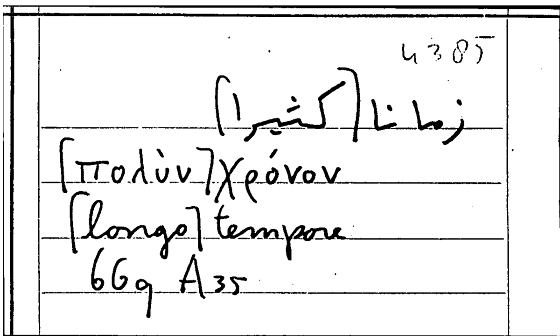 4385
زمانا [كثيرا]
[πολὺν] χρόνον
[longo] tempore
66q A35